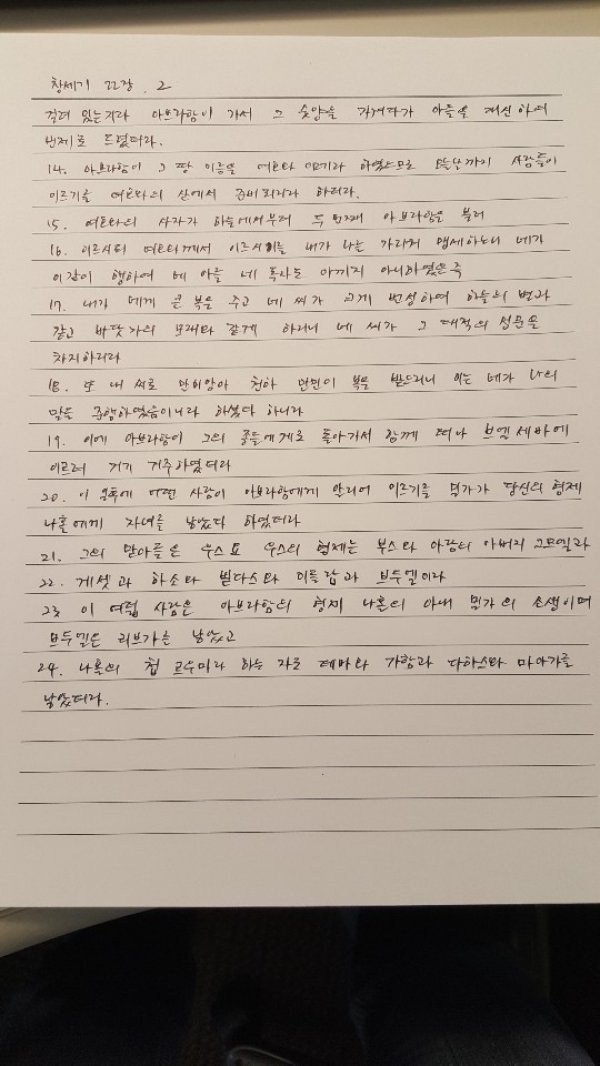 창세기 22장. 2
걸려 있는지라 아브라함이 가서 그 숫양을 가져다가 아들을 대신 하여
번제로 드렸더라.
14. 아브라함이 그 땅 이름을 여호와 이레라 하였으므로 오늘날까지 사람들이
이르기를 여호와의 산에서 준비되리라 하더라.
15. 여호와의 사자가 하늘에서부터 두 번째 아브라함을 불러
16. 이르시되 여호와께서 이르시기를 내가 나를 가리켜 맹세하노니 네가
이같이 행하여 네 아들 네 독자도 아끼지 아니하였은즉
17. 내가 네게 큰 복을 주고 네 씨가 크게 번성하여 하늘의 별과
같고 바닷가의 모래와 같게 하리니 네 씨가 그 대적의 성문을
차지하리라
18. 또 네 씨로 말미암아 천하 만민이 복을 받으리니 이는 네가 나의
말을 준행하였음이니라 하셨다 하니라
19. 이에 아브라함이 그의 종들에게로 돌아가서 함께 떠나 브엘세바에
이르러 거기 거주하였더라
20. 이 일후에 어떤 사람이 아브라함에게 알리어 이르기를 밀가가 당신의 형제
나홀에게 자녀를 낳았다 하였더라
21. 그의 맏아들은 우스요 우스의 형제는 부스와 아람의 아버지 그므엘과
22. 게셋과 하소와 빌다스와 이들랍과 브두엘이라
23 이 여덟 사람은 아브라함의 형제 나홀의 아내 밀가의 소생이며
브두엘은 리브가를 낳았고
24. 나홀의 첩 르우마라 하는 자도 데바와 가함과 다하스와 마아가를
낳았더라.